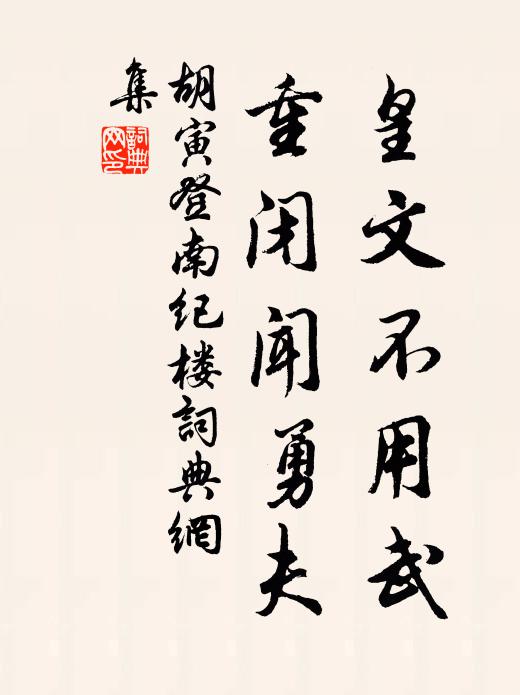 皇文不用武
重闭闻勇夫
胡寅登南纪楼詞典網
集
詞典網印